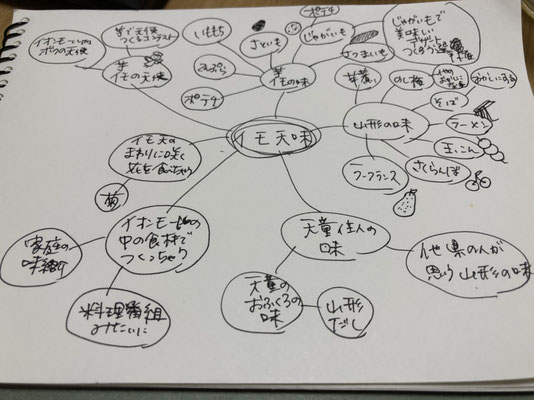 イオンモール内
ボクの天使
芋で天使
つくるコンテスト
芋
イモの天使
いももち
てんぷら
ポテチ
さといも
ポテチ
じゃがいも
さつまいも
芋
イモの味
じゃがいもで
美味しい
つくろう選
芋煮
のし梅
おかしにする
そば
ラーメン
玉こん
さくらんぼ
ラ・フランス
山形の味
イモ天味
イモ天の
まわりに咲く
花を食べちゃう
菊
イオンモールの
中の食材で
つくっちゃう
家庭の
味
料理番組
みたいに
天童住人の
味
天童の
おふくろの
味
山形
だし
他県の人が
思う山形の味